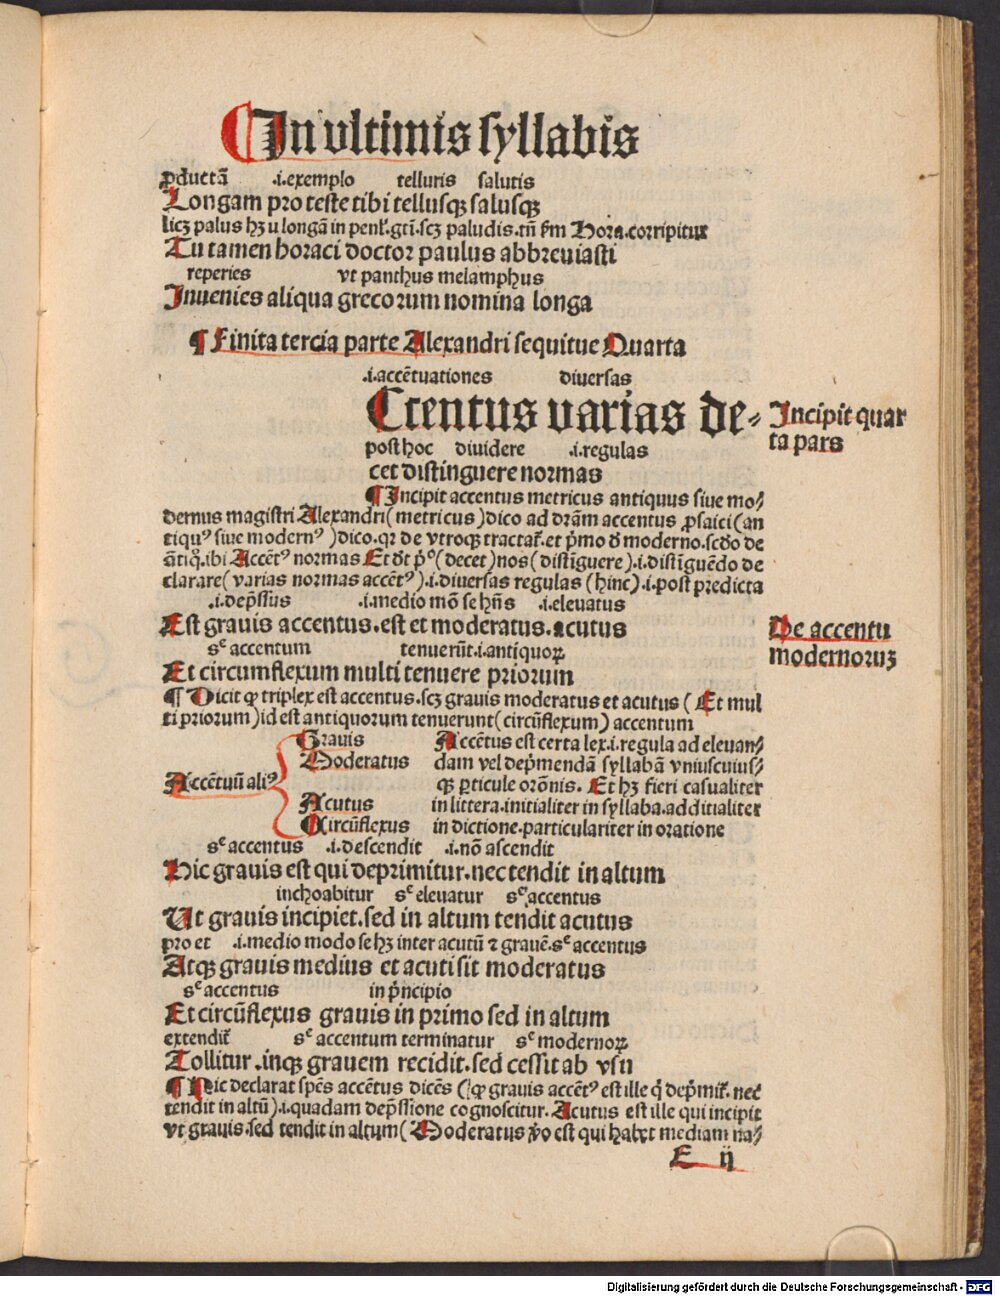 ¶In vltimis syllabis
ꝓductā .i.exemplo telluris salutis
Longam pro teste tibi tellusqꝫ salusqꝫ
licꝫ palus hꝫ u longā in penl̄.gtī.scꝫ paludis.tn̄ ẜm Hora.corripitur
Tu tamen horaci doctor paulus abbreuiasti
reperies vt panthus melamphus
Inuenies aliqua grecorum nomina longa
¶ Finita tercia parte Alexandri sequitue Quarta
.i.accētuationes diuersas
Ccentus varias de⸗
Incipit quar
ta pars
post hoc diuidere .i.regulas
cet distinguere normas
¶Incipit accentus metricus antiquus siue mo⸗
dernus magistri Alexandri(metricus)dico ad dr̄am accentus ꝓsaici(an
tiquꝰ siue modernꝰ)dico.qꝛ de vtroqꝫ tractat̄.et p̄mo ꝺ̄ moderno.scd̄o de
ātiq̊.ibi Accētꝰ normas Et d̄t p̄ᵒ(decet)nos(distīguere).i.distīguēdo de
clarare(varias normas accētꝰ).i.diuersas regulas(hinc).i.post predicta
.i.dep̄ssus .i.medio mō se hn̄s .i.eleuatus
Est grauis accentus.est et moderatus.acutus
De accentu
modernoruꝫ
sᶜ accentum tenuerūt.i.antiquoꝝ
Et circumflexum multi tenuere priorum
¶ Dicit ꝙ triplex est accentus.scꝫ grauis moderatus et acutus(Et mul
ti priorum)id est antiquorum tenuerunt(circūflexum)accentum
Accētuū aliꝰ
Grauis
Moderatus
Acutus
Circūflexus
Accētus est certa lex.i.regula ad eleuan⸗
dam vel dep̄mendā syllabā vniuscuius⸗
qꝫ ꝑticule orōnis. Et hꝫ fieri casualiter
in littera.initialiter in syllaba.additialiter
in dictione.particulariter in oratione
sᶜ accentus .i.descendit .i.nō ascendit
Hic grauis est qui deprimitur.nec tendit in altum
inchoabitur sᶜ eleuatur sᶜ accentus
Ut grauis incipiet.sed in altum tendit acutus
pro et .i.medio modo se hꝫ inter acutū ⁊ grauē.sᶜ accentus
Atqꝫ grauis medius et acuti sit moderatus
sᶜ accentus in p̄ncipio
Et circūflexus grauis in primo sed in altum
extendit̄ sᶜ accentum terminatur sᶜ modernoꝝ
Tollitur .inqꝫ grauem recidit.sed cessit ab vsu
¶ Hic declarat spēs accētus dicēs(ꝙ grauis accētꝰ est ille q̇ dep̄mit̄. nec
tendit in altū).i.quadam dep̄ssione cognoscitur. Acutus est ille qui incipit
vt grauis.sed tendit in altum(Moderatus v̊o est qui habet mediam na⸗
E ij
Digitalisierung gefördert durch die Deutsche Forschungsgemeinschaft - DFG